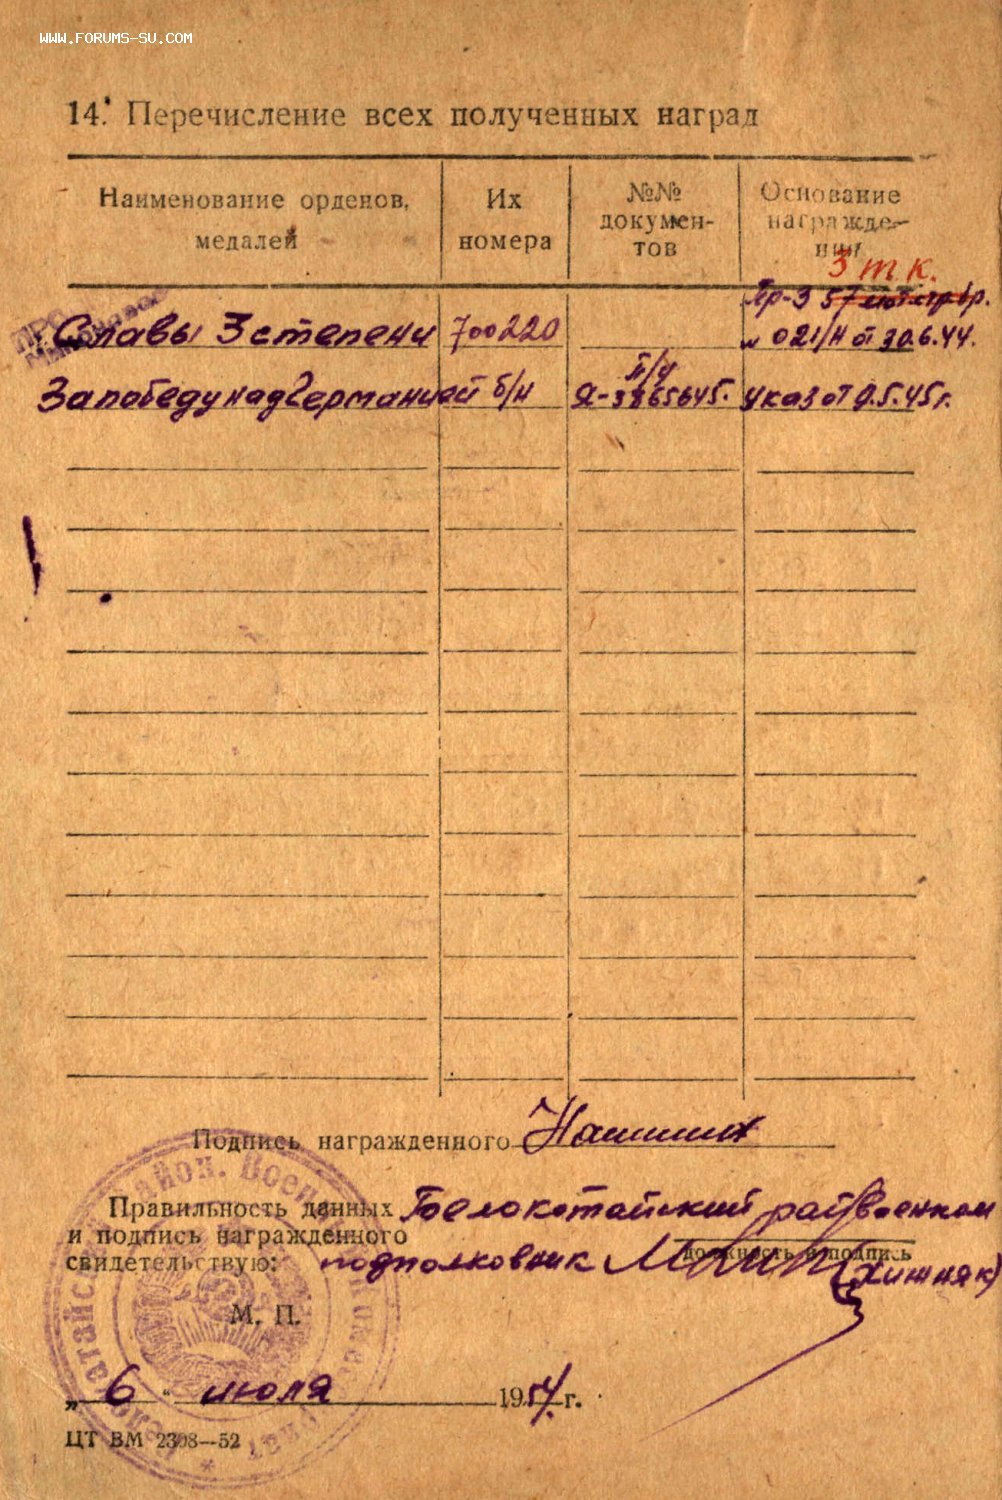 WWW.FORUMS-SU.COM
14. Перечисление всех полученных наград
Наименование орденов, медалей
Их номера
№№ документов
Основание награждения
3 т к.
Славы 3 степени 700220
Пр-з 57 мот стр бр.
н 021/н от 30.6.44.
За победу над Германией б/н
Я-3865645. Указ от 9.5.45г.
Подпись награжденного
Правильность данных Белокатайский райвоенком
и подпись награжденного
должность и подпись
свидетельствую: подполковник (Хижняк)
М. П.
„ 6 “ июля 1954 г.
ЦТ ВМ 2308—52